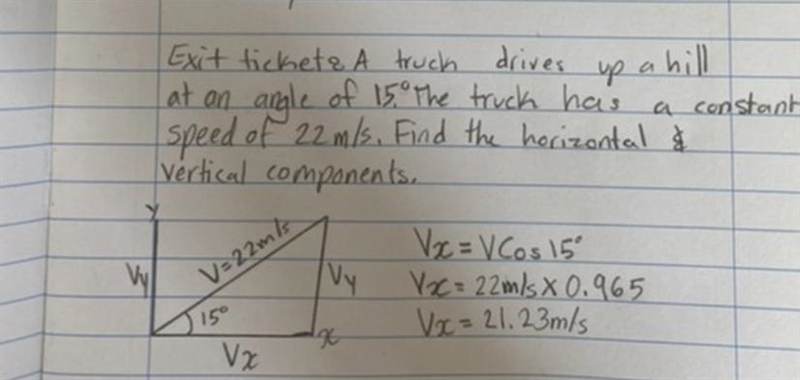 Exit ticket: A truck drives up a hill
at an angle of 15°. The truck has a constant
speed of 22 m/s. Find the horizontal &
vertical components.
y
Vy
V=22m/s
15°
Vy
x
Vx
Vx = VCos 15°
Vx = 22m/s X 0.965
Vx = 21.23m/s